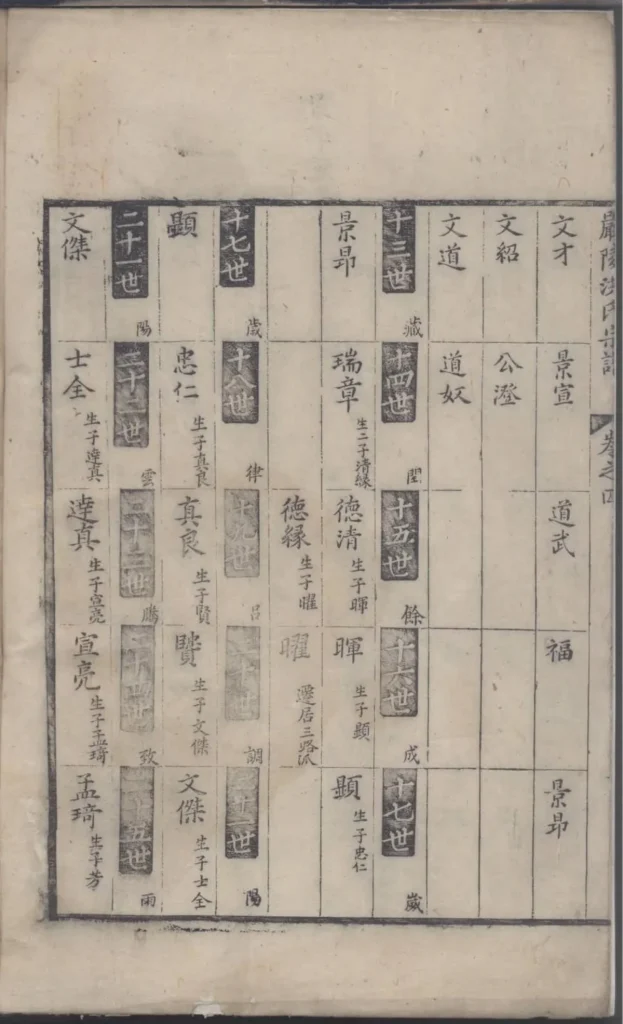 嚴陵洪氏宗譜 卷之四
文才 景宣 道武 福 景昂
文紹 公澄
文道 道奴
十三世 藏 十四世 閏 十五世 餘 十六世 成 十七世 歲
景昂 瑞章 生二子清緣 德清 生子暉 暉 生子顯 顯 生子忠仁
德緣 生子曜 曜 遷居三路派
十七世 歲 十八世 律 十九世 吕 二十世 調 二十一世 陽
顯 忠仁 生子真良 真良 生子賢 賢 生子文傑 文傑 生子士全
二十一世 陽 二十二世 雲 二十三世 騰 二十四世 致 二十五世 雨
文傑 士全 生子達真 達真 生子宣亮 宣亮 生子孟琦 孟琦 生子芳